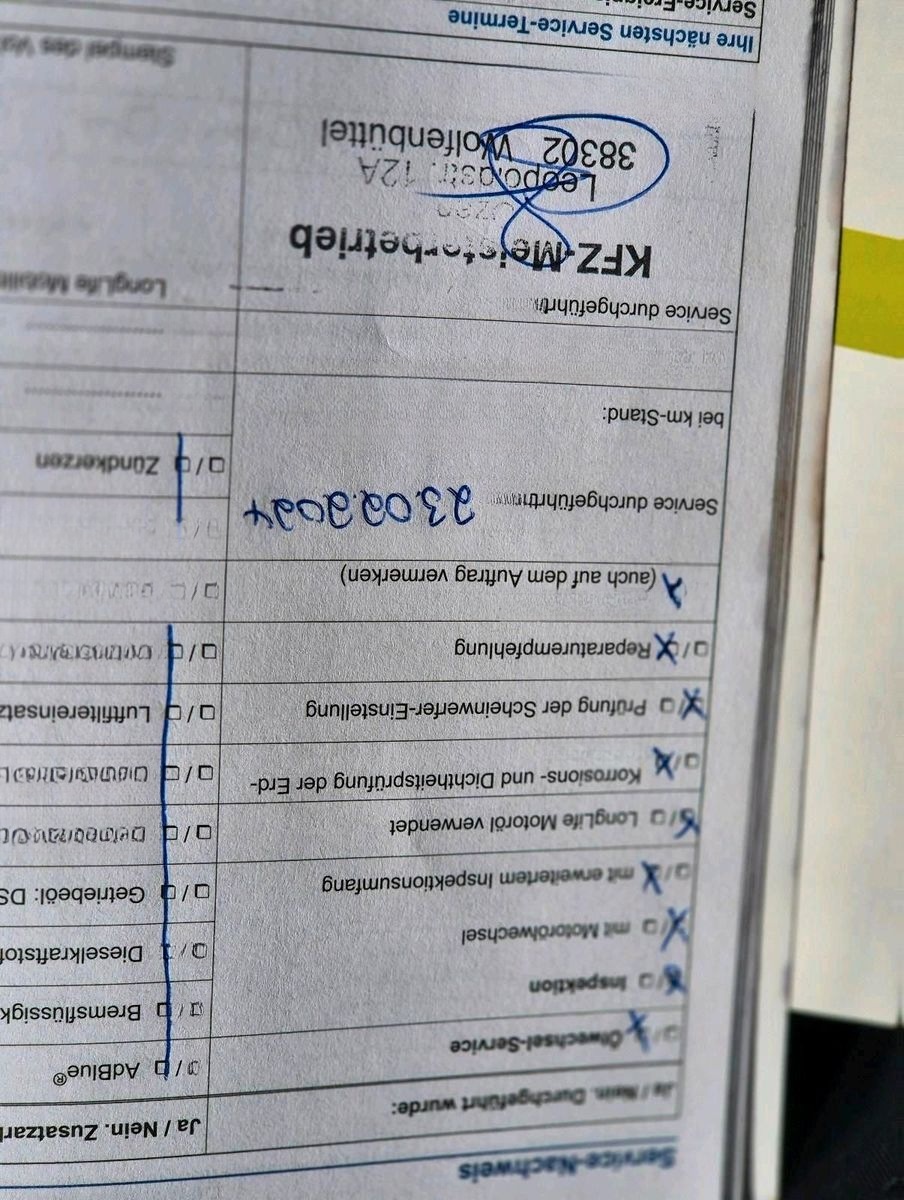 Service-Nachweis
Ja / Nein. Durchgeführt wurde:
Ölwechsel-Service
Inspektion
mit Motorölwechsel
mit erweitertem Inspektionsumfang
LongLife Motoröl verwendet
Korrosions- und Dichtheitsprüfung der Erd-
Prüfung der Scheinwerfer-Einstellung
Reparaturempfehlung
(auch auf dem Auftrag vermerken)
Service durchgeführt 23.02.2024
bei km-Stand:
Service durchgeführt
KFZ-Meisterbetrieb
Leopoldstr. 12A
38302 Wolfenbüttel
Ja / Nein. Zusatzar
AdBlue®
Bremsflüssigk
Dieselkraftstof
Getriebeöl: DS
Luftfiltereinsatz
Zündkerzen
LongLife Mobili
Stempel des
Ihre nächsten Service-Termine